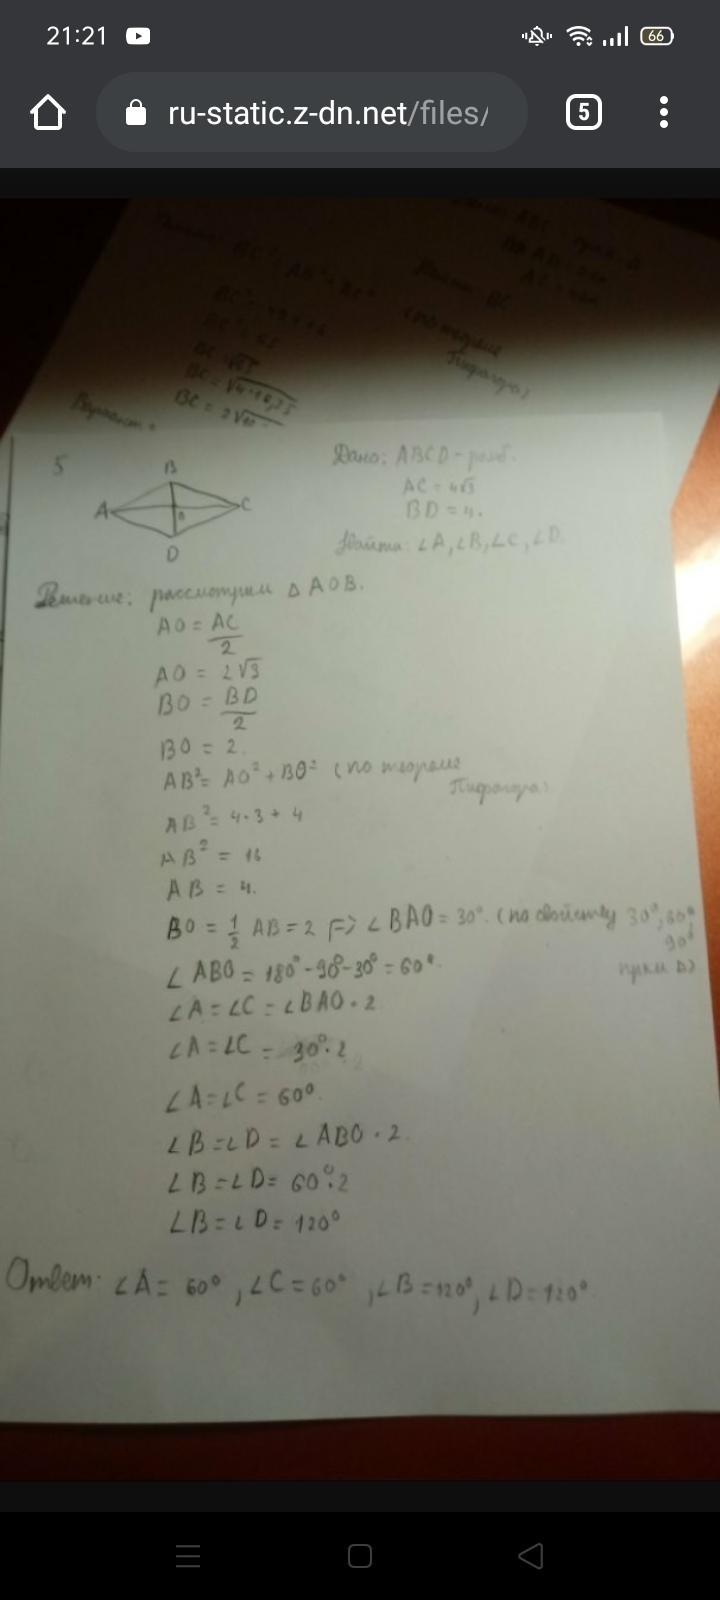 21:21
66
ru-static.z-dn.net/files/
5
BC = 2√
Вариант
5
B
A
C
D
Дано: ABCD - ромб.
AC = 4√3
BD = 4.
Найти: ∠A, ∠B, ∠C, ∠D.
Решение: рассмотрим △ AOB.
AO = AC/2
AO = 2√3
BO = BD/2
BO = 2.
AB² = AO² + BO² (по теореме
Пифагора)
AB² = 4·3 + 4
AB² = 16
AB = 4.
BO = 1/2 AB = 2 => ∠BAO = 30°. (по свойству 30°, 60°
90°
прям △)
∠ ABO = 180° - 90° - 30° = 60°.
∠A = ∠C = ∠BAO · 2
∠A = ∠C = 30°· 2
∠A = ∠C = 60°.
∠B = ∠D = ∠ABO · 2.
∠B = ∠D = 60°·2
∠B = ∠D = 120°
Ответ: ∠A = 60°, ∠C = 60°, ∠B = 120°, ∠D = 120°.